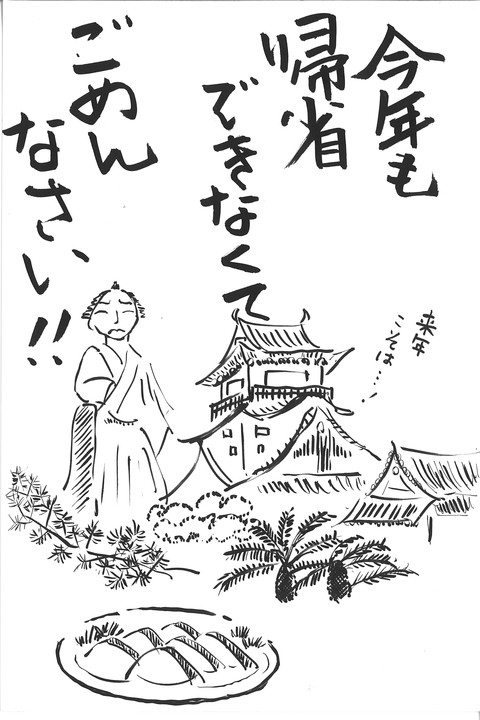 今年も
帰省
できなくて
ごめん
なさい!!
来年
こそは…!